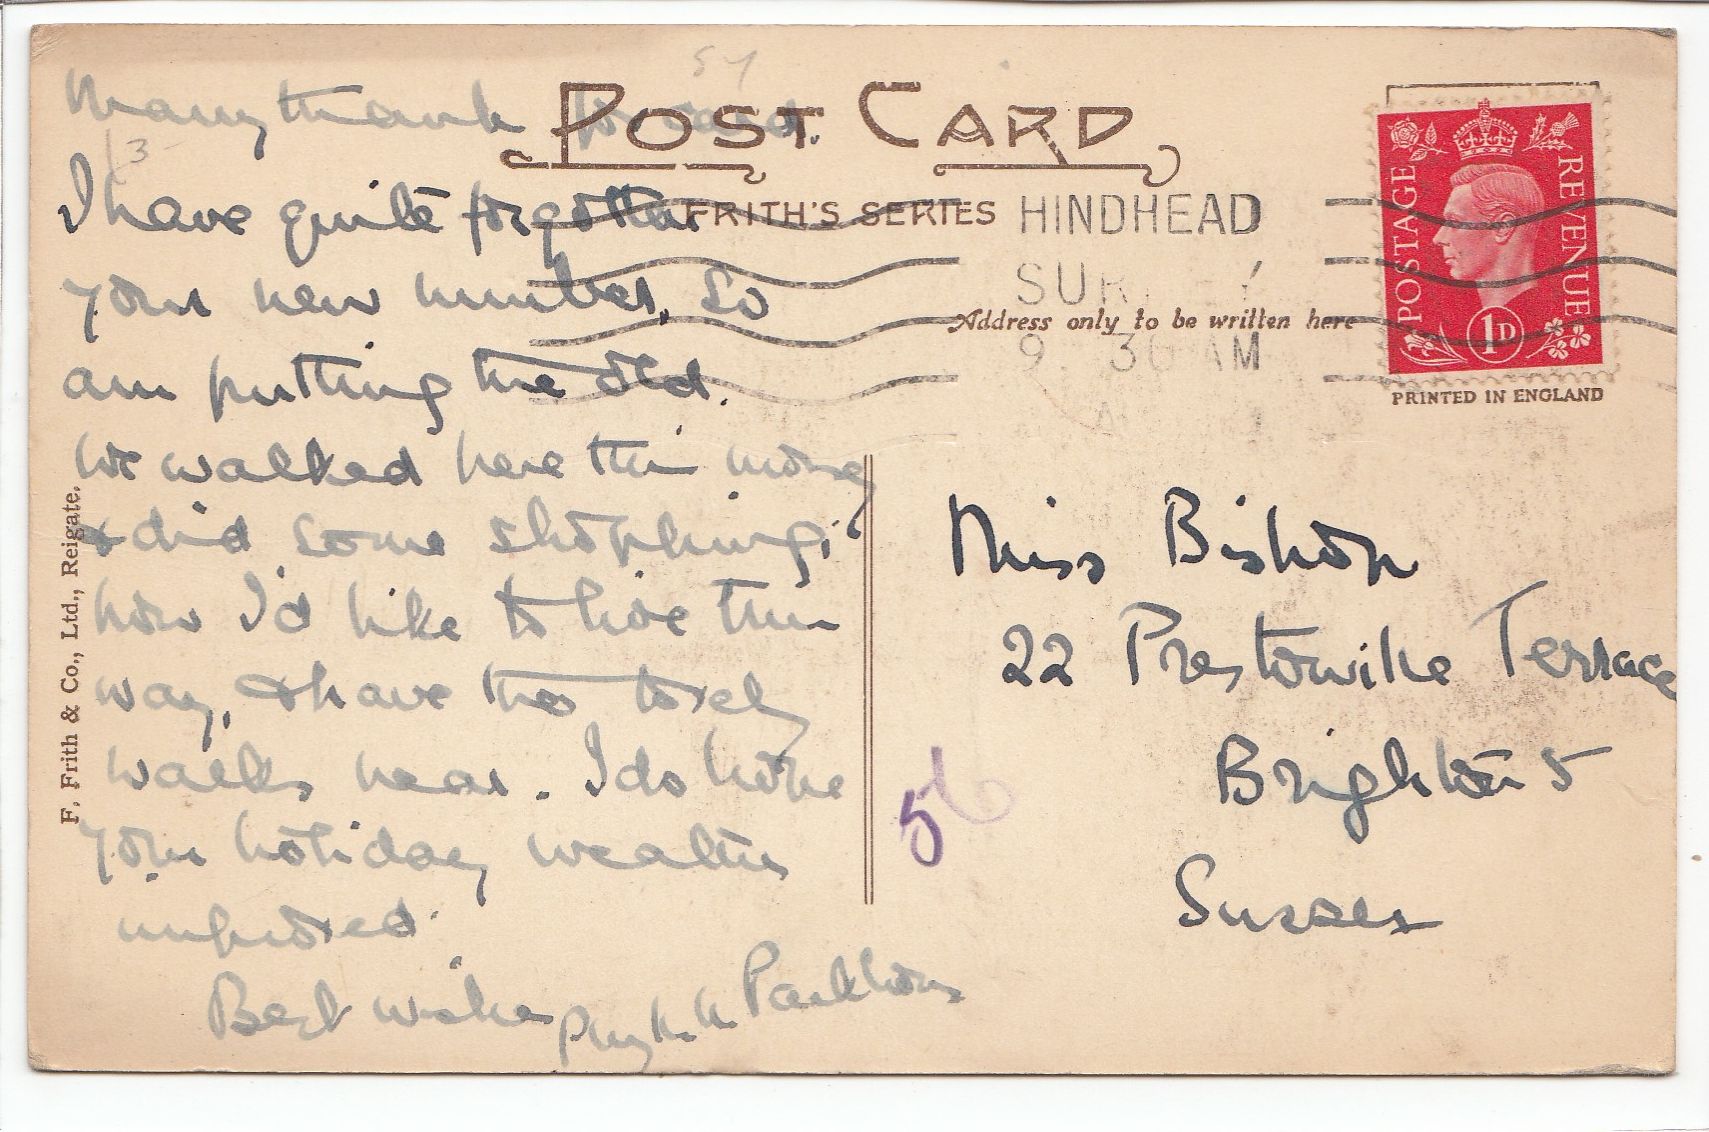 Many thanks for card.
I have quite forgotten
your new number, so
am putting the old.
We walked here this morng
& did some shopping;
how I'd like to live this
way, & have the lovely
walks near. I do hope
your holiday weather
improved.
Best wishes
POST CARD
FRITH'S SERIES
HINDHEAD
SUR EY
9 30 AM
Address only to be written here
POSTAGE
REVENUE
1D
PRINTED IN ENGLAND
Miss Bishop
22 Prestonville Terrace
Brighton 5
Sussex
F. Frith & Co., Ltd., Reigate.
56
3